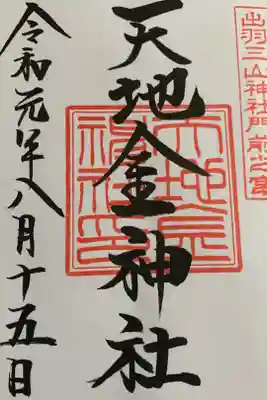 出羽三山神社門前之宮
天地金神社
令和元年八月十五日